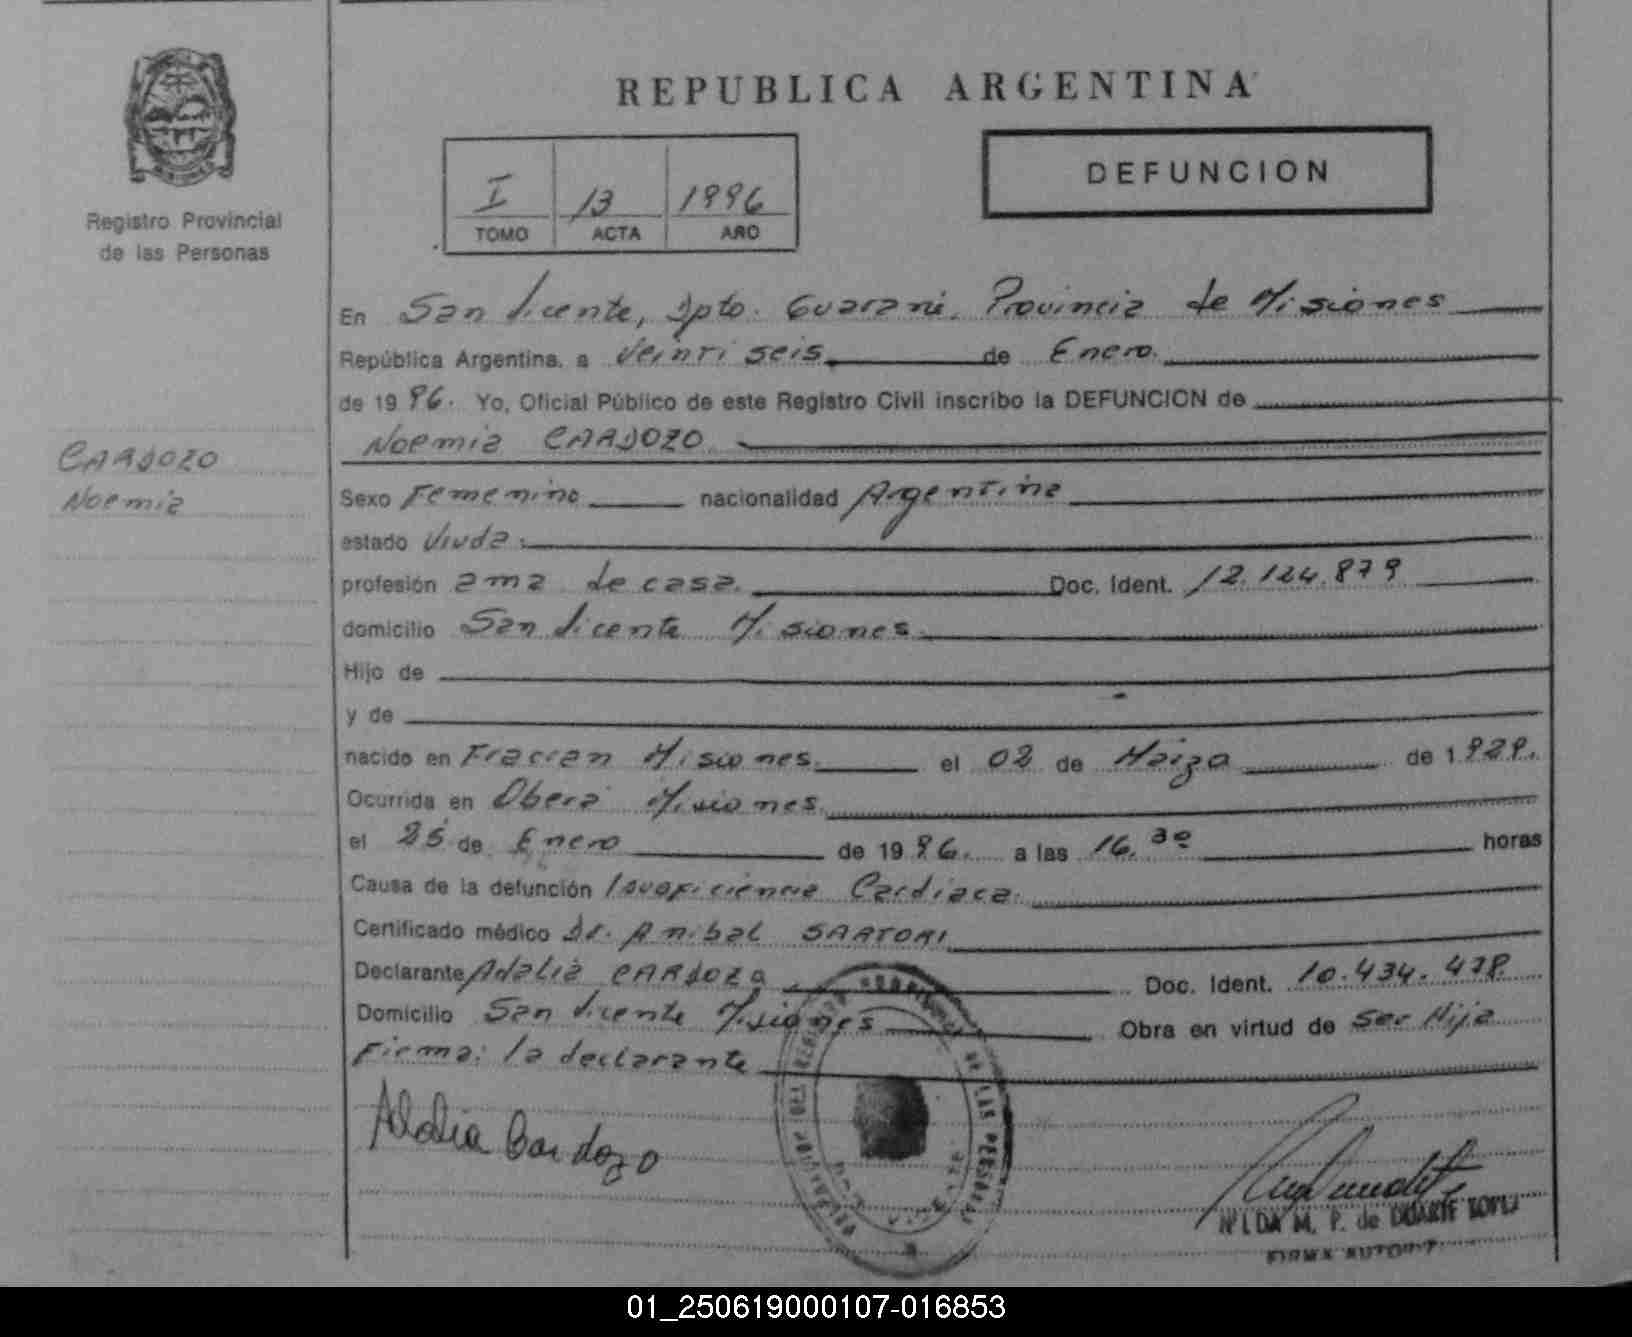 REPUBLICA ARGENTINA
Registro Provincial
de las Personas
I 13 1996
TOMO ACTA AÑO
DEFUNCION
En San Vicente, Dpto. Guarani, Provincia de Misiones
República Argentina, a Veinti seis de Enero.
de 1996. Yo, Oficial Público de este Registro Civil inscribo la DEFUNCION de
Noemia CARDOZO
CARDOZO
Noemia
Sexo Femenino nacionalidad Argentina
estado Viuda.
profesión ama de casa. Doc. Ident. 12.124.879
domicilio San Vicente Misiones.
Hijo de
y de
nacido en Fracran Misiones. el 02 de de 1929.
Ocurrida en Obera Misiones.
el 25 de Enero de 1996. a las 16.30 horas
Causa de la defunción Cardiaca.
Certificado médico Dr. Anibal SARTORI
Declarante Adalia CARDOZO Doc. Ident. 10.434.478
Domicilio San Vicente Misiones Obra en virtud de Ser Hija
Firma: la declarante
Cardozo
DE LAS PERSONAS
NILDA M. P. de DUARTE
01_250619000107-016853